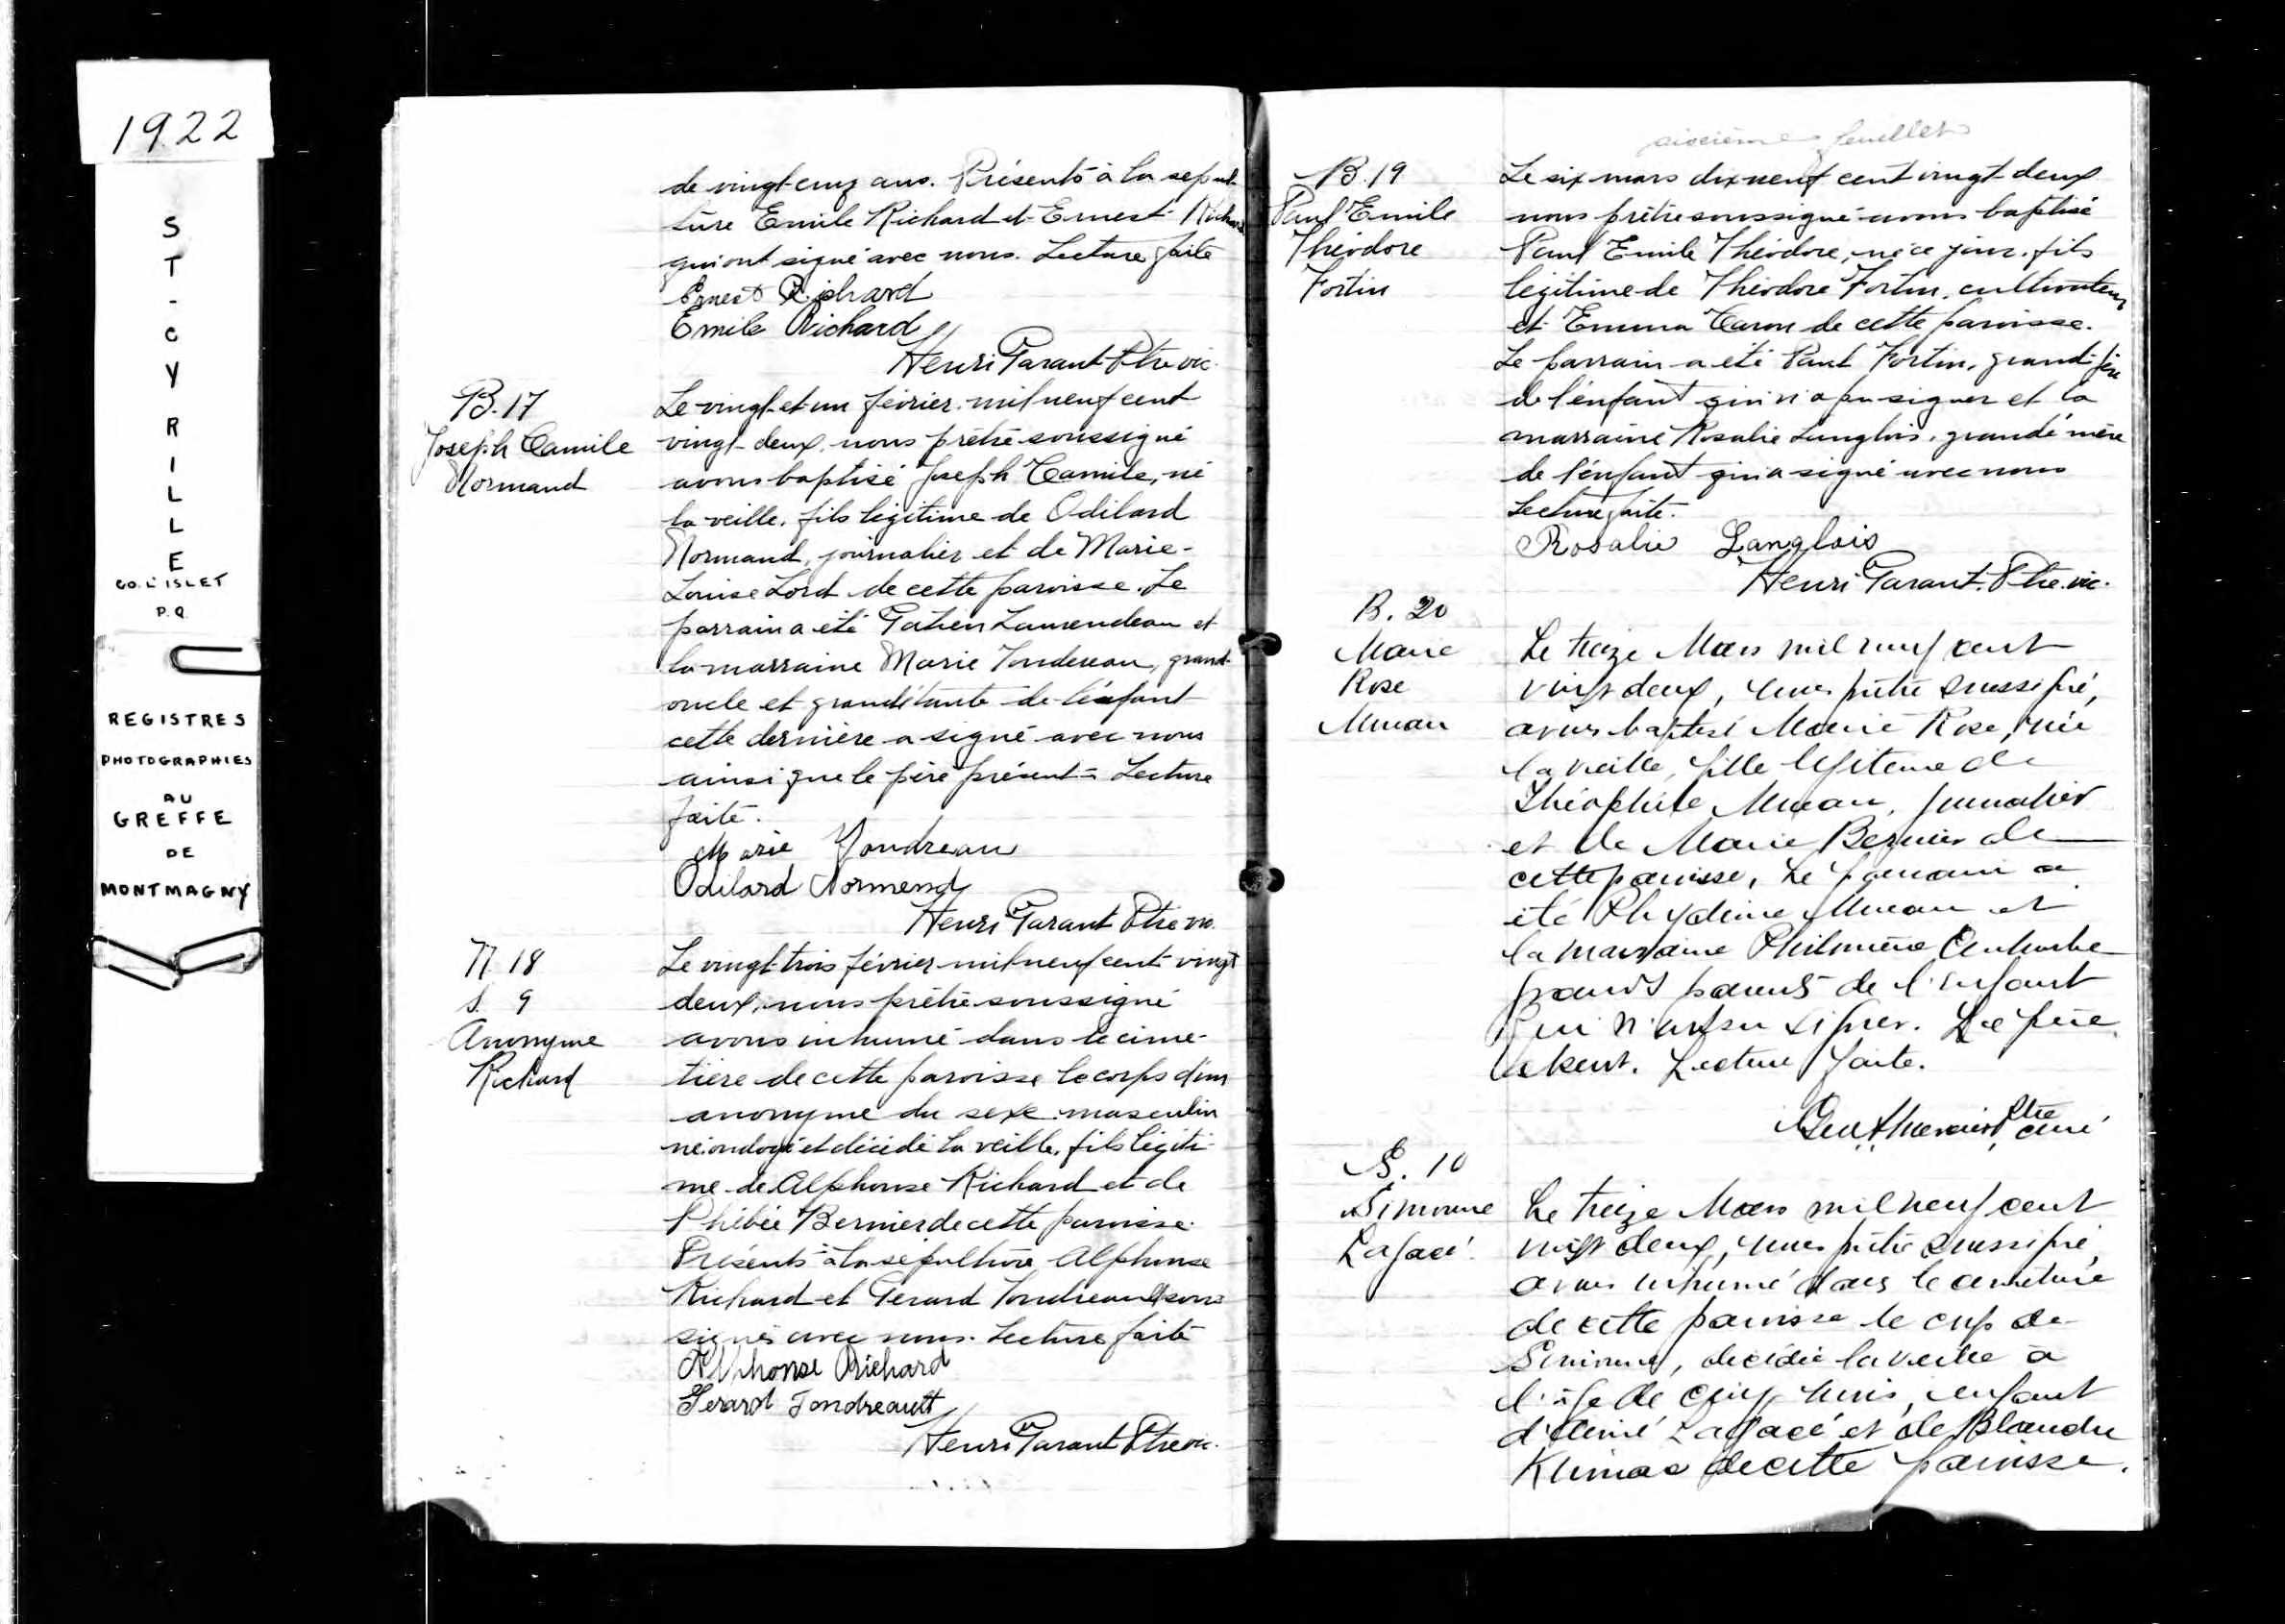 1922
ST-CYRILLE
CO. L'ISLET
P.Q.
REGISTRES
PHOTOGRAPHIES
AU
GREFFE
DE
MONTMAGNY
de vingt-cinq ans. Présents à la sepul-
ture Emile Richard et Ernest Richard
qui ont signé avec nous. Lecture faite
Ernest Richard
Emile Richard
Henri Parant Ptre vic.
B. 17
Joseph Camile
Normand
Le vingt-et-un février mil neuf cent
vingt-deux, nous prêtre soussigné
avons baptisé Joseph Camile, né
la veille, fils légitime de Odilard
Normand, journalier et de Marie-
Louise Lord de cette paroisse. Le
parrain a été Gatien Laurendeau et
la marraine Marie Tondreau, grand-
oncle et grand'tante de l'enfant
cette dernière a signé avec nous
ainsi que le père présent = Lecture
faite.
Marie Tondreau
Odilard Normend
Henri Parant Ptre vic.
N. 18
S. 9
Anonyme
Richard
Le vingt-trois février mil neuf cent vingt
deux, nous prêtre soussigné
avons inhumé dans le cime-
tière de cette paroisse le corps d'un
anonyme du sexe masculin
né ondoyé et décédé la veille, fils légiti-
me de Alphonse Richard et de
Phébée Bernier de cette paroisse.
Présents à la sépulture Alphonse
Richard et Gerard Tondreau sous
signés avec nous. Lecture faite
Alphonse Richard
Gerard Tondreault
Henri Parant Ptre vic.
sixième feuillet
B. 19
Paul Emile
Théodore
Fortin
Le six mars dix neuf cent vingt-deux
nous prêtre soussigné avons baptisé
Paul Emile Théodore, né ce jour, fils
légitime de Théodore Fortin, cultivateur
et Emma Caron de cette paroisse.
Le parrain a été Paul Fortin, grand-père
de l'enfant qui n'a pu signer et la
marraine Rosalie Langlois, grand'mère
de l'enfant qui a signé avec nous
Lecture faite.
Rosalie Langlois
Henri Parant. Ptre. vic.
B. 20
Marie
Rose
Le treize Mars mil neuf cent
vingt deux, nous prêtre soussigné,
avons baptisé Marie Rose, née
la veille, fille légitime de
Théophile journalier
et de Marie Bernier de
cette paroisse, Le parrain a
été et
la marraine Philomène
grands parents de l'enfant
qui n'ont su signer. Le père
absent. Lecture faite.
Ptre
curé
S. 10
Simonne
Lagacé
Le treize Mars mil neuf cent
vingt deux, nous prêtre soussigné,
avons inhumé dans le cimetière
de cette paroisse le corps de
Simonne, décédée la veille à
l'âge de cinq mois, enfant
d'Aimé Lagacé et de Blandine
de cette paroisse.